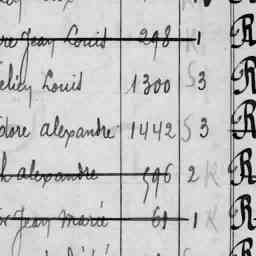 re Jean Louis 298 1 R
Louis 1300 S 3 R
dore alexandre 1442 S 3 R
h alexandre 596 2 R R
Jean Marie 61 1 R R